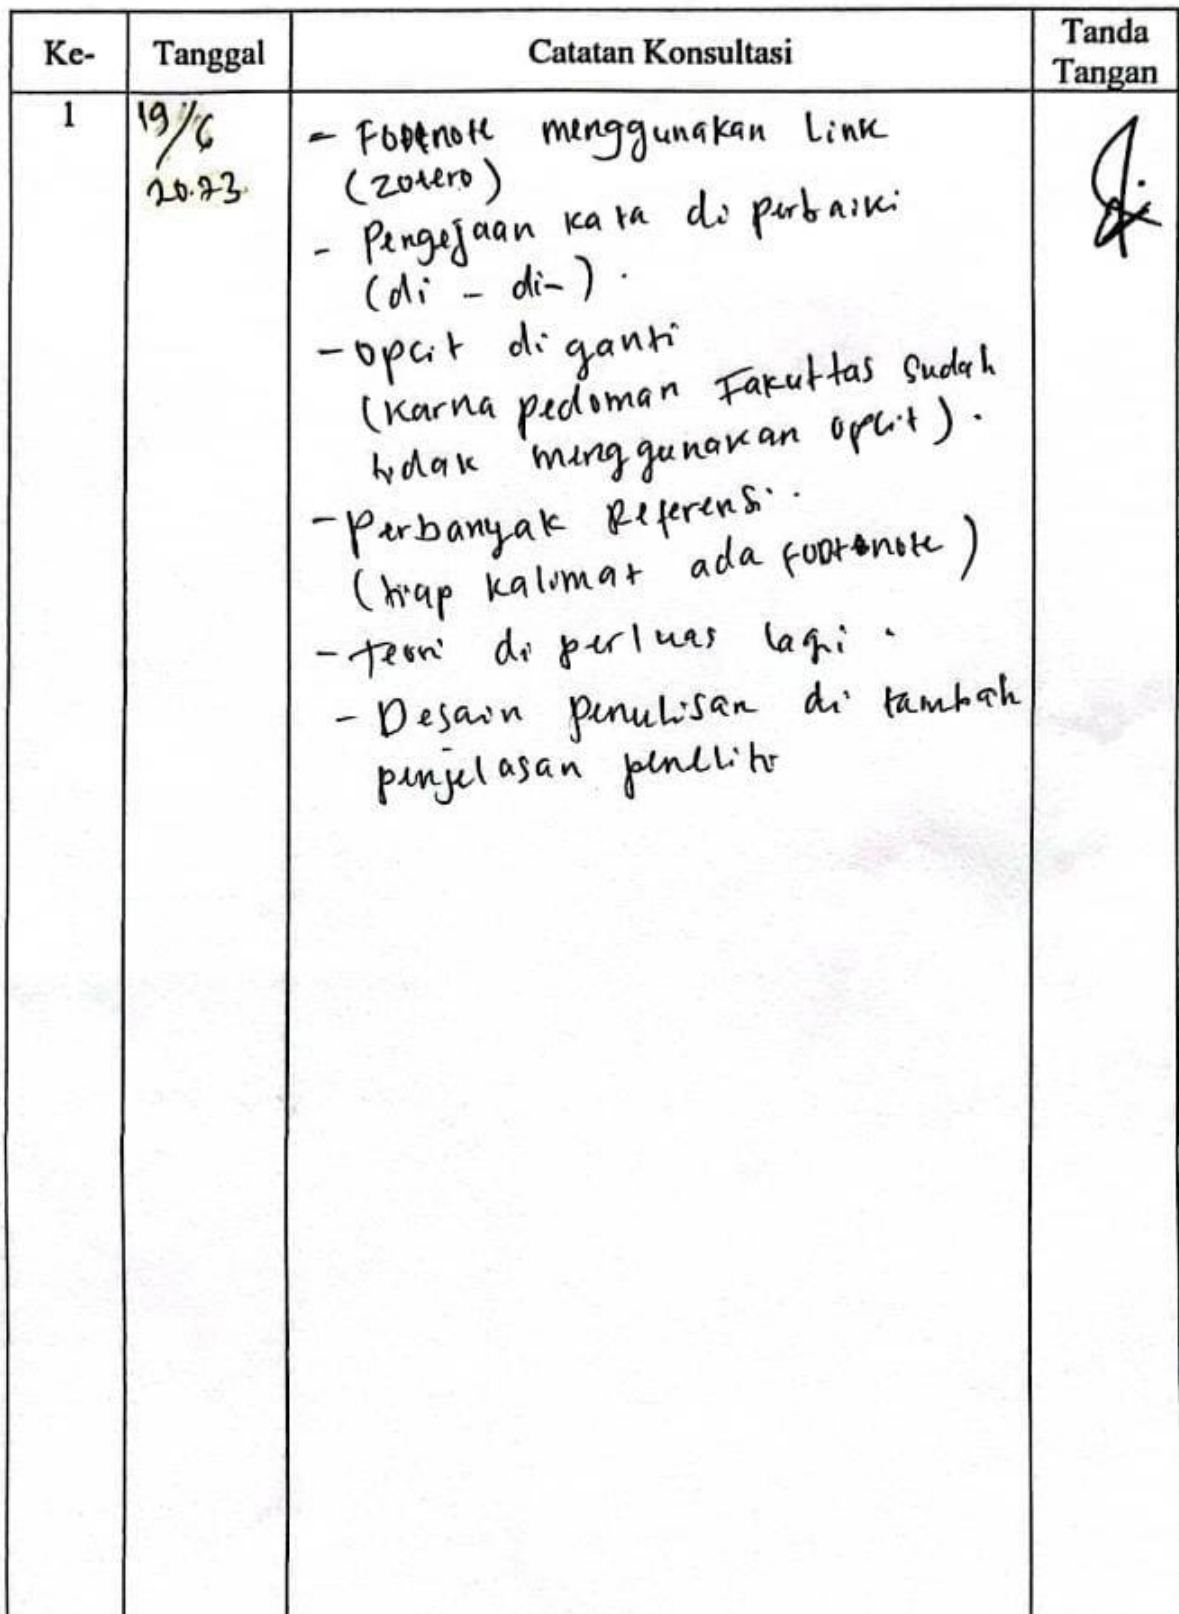 Ke- Tanggal Catatan Konsultasi Tanda Tangan
1 19/6 2023
- Footnote menggunakan Link
(zotero)
- Pengejaan kata di perbaiki
(di - di-).
- opcit di ganti
(karna pedoman Fakultas sudah
tidak menggunakan opcit).
- Perbanyak Referensi.
(tiap kalimat ada footnote)
- teori di perluas lagi.
- Desain penulisan di tambah
penjelasan peneliti